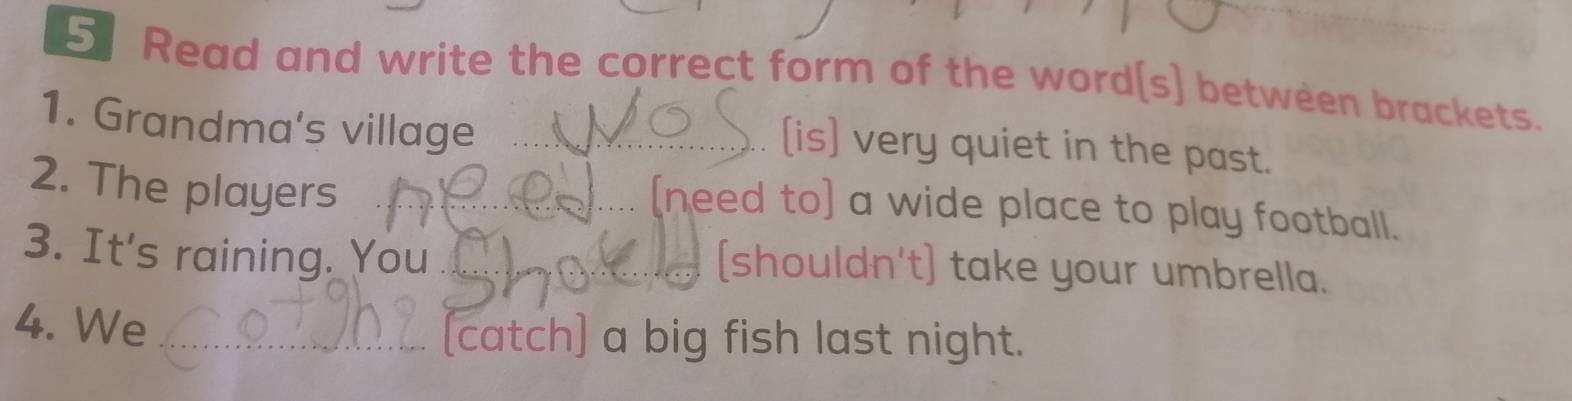 5 Read and write the correct form of the word(s) between brackets.
1. Grandma's village wos (is) very quiet in the past.
2. The players need (need to) a wide place to play football.
3. It's raining. You should (shouldn't) take your umbrella.
4. We (catch) a big fish last night.